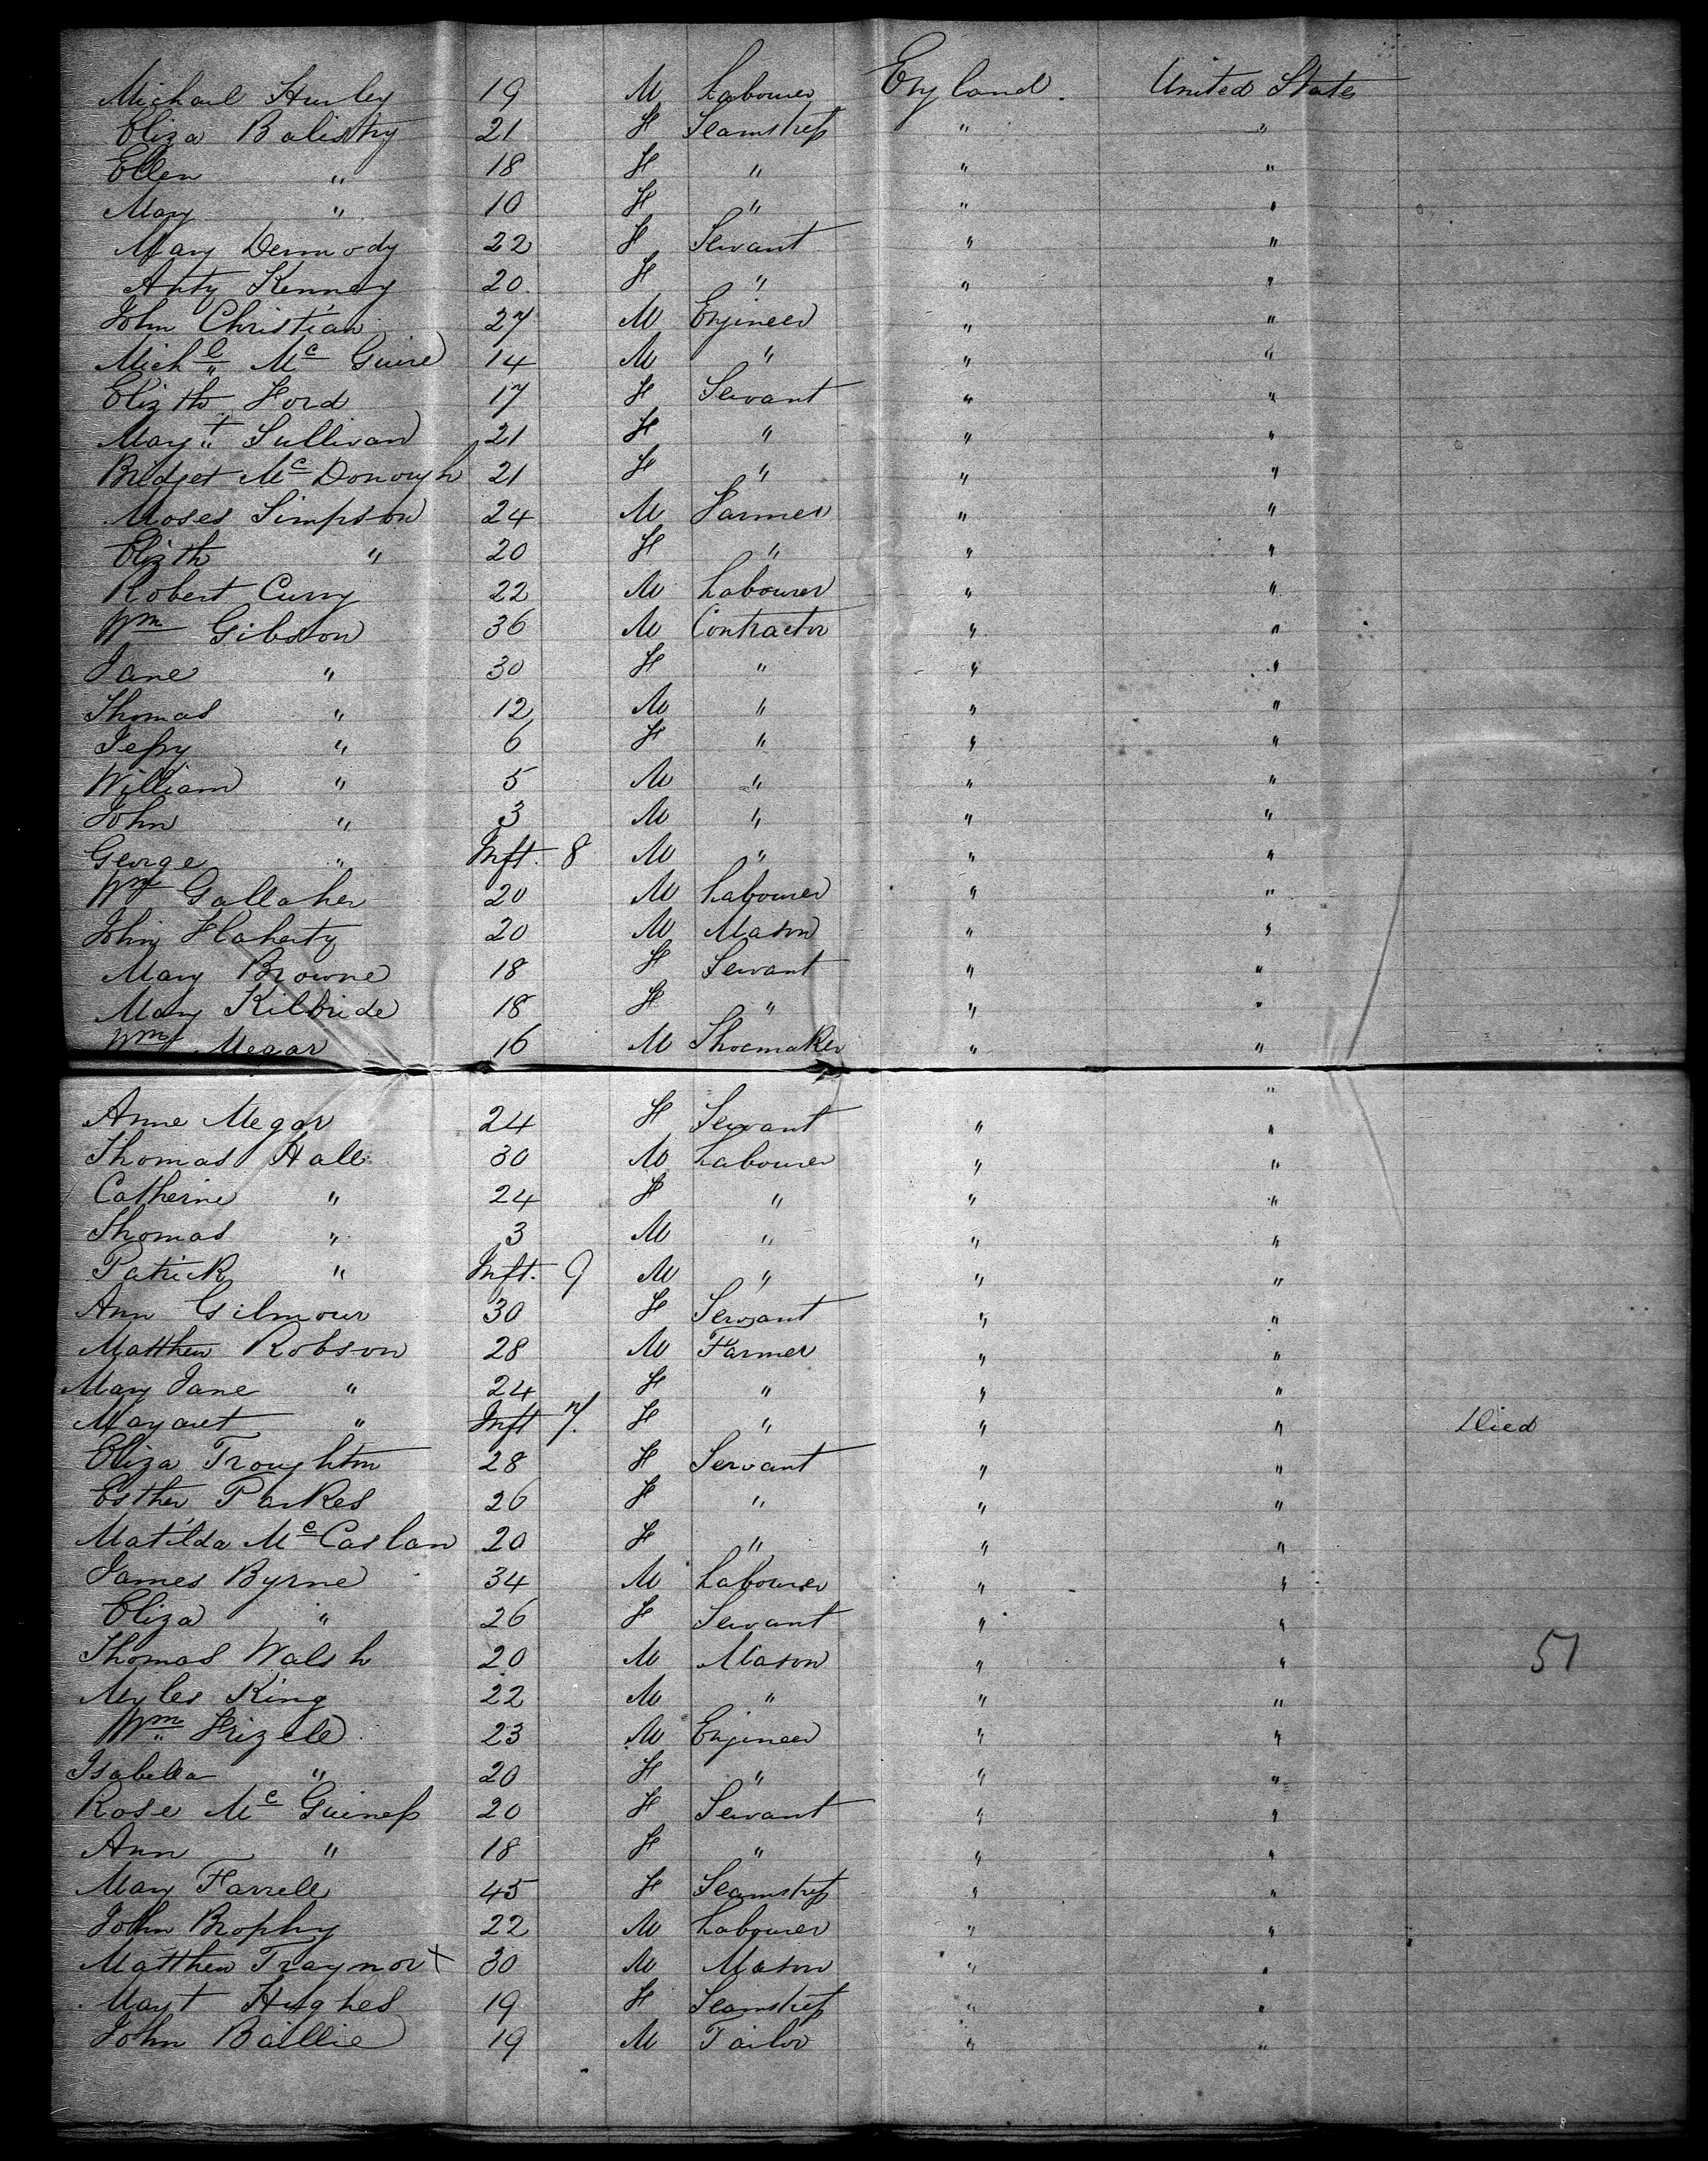 Michael Hurley 19 M Labourer England. United States
Eliza Balistry 21 F Seamstress " "
Ellen " 18 F " " "
Mary " 10 F " " "
Mary Dermody 22 F Servant " "
Anty Kenney 20 F " " "
John Christian 27 M Engineer " "
Michl Mc Guire 14 M " " "
Elizth Ford 17 F Servant " "
Margt Sullivan 21 F " " "
Bridget McDonough 21 F " " "
Moses Simpson 24 M Farmer " "
Elizth " 20 F " " "
Robert Curry 22 M Labourer " "
Wm Gibson 36 M Contractor " "
Jane " 30 F " " "
Thomas " 12 M " " "
Jessy " 6 F " " "
William " 5 M " " "
John " 3 M " " "
George " Inft. 8 M " " "
Wm Gallaher 20 M Labourer " "
John Flaherty 20 M Mason " "
Mary Browne 18 F Servant " "
Mary Kilbride 18 F " " "
Wm Megar 16 M Shoemaker " "
"
Anne Megar 24 F Servant " "
Thomas Hall 30 M Labourer " "
Catherine " 24 F " " "
Thomas " 3 M " " "
Patrick " Inft. 9 M " " "
Ann Gilmour 30 F Servant " "
Matthew Robson 28 M Farmer " "
Mary Jane " 24 F " " "
Margaret " Inft 7. F " " " Died
Eliza Troughton 28 F Servant " "
Esther Parkes 26 F " " "
Matilda McCaslan 20 F " " "
James Byrne 34 M Labourer " "
Eliza " 26 F Servant " "
Thomas Walsh 20 M Mason " " 51
Myles King 22 M " " "
Wm Frizell 23 M Engineer " "
Isabella " 20 F " " "
Rose Mc Guiness 20 F Servant " "
Ann " 18 F " " "
Mary Farrell 45 F Seamstress " "
John Brophy 22 M Labourer " "
Matthew Traynor x 30 M Mason " "
Margt Hughes 19 F Seamstress " "
John Baillie 19 M Tailor " "